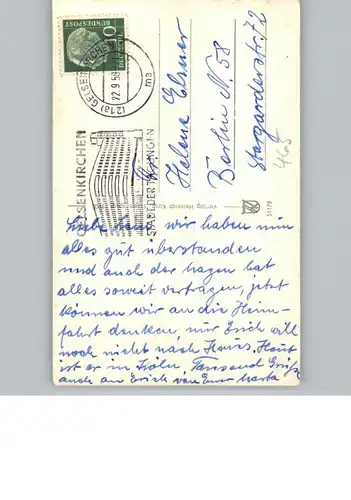 10
BUNDESPOST
(21a) GELSEN
22.9.58
ma
GELSENKIRCHEN
STADT DER TAGUNGEN
Helene Elsner
Berlin N. 58
Stargarderstr. 72
Verlag Heinrich
S1178
Liebe wir haben nun
alles gut überstanden
und auch der Magen hat
alles soweit vertragen, jetzt
können wir an die Heim-
fahrt denken, nur Erich will
noch nicht nach Haus. Heut
ist er in Köln. Tausend Grüße
auch an Erich von Eurer Marta